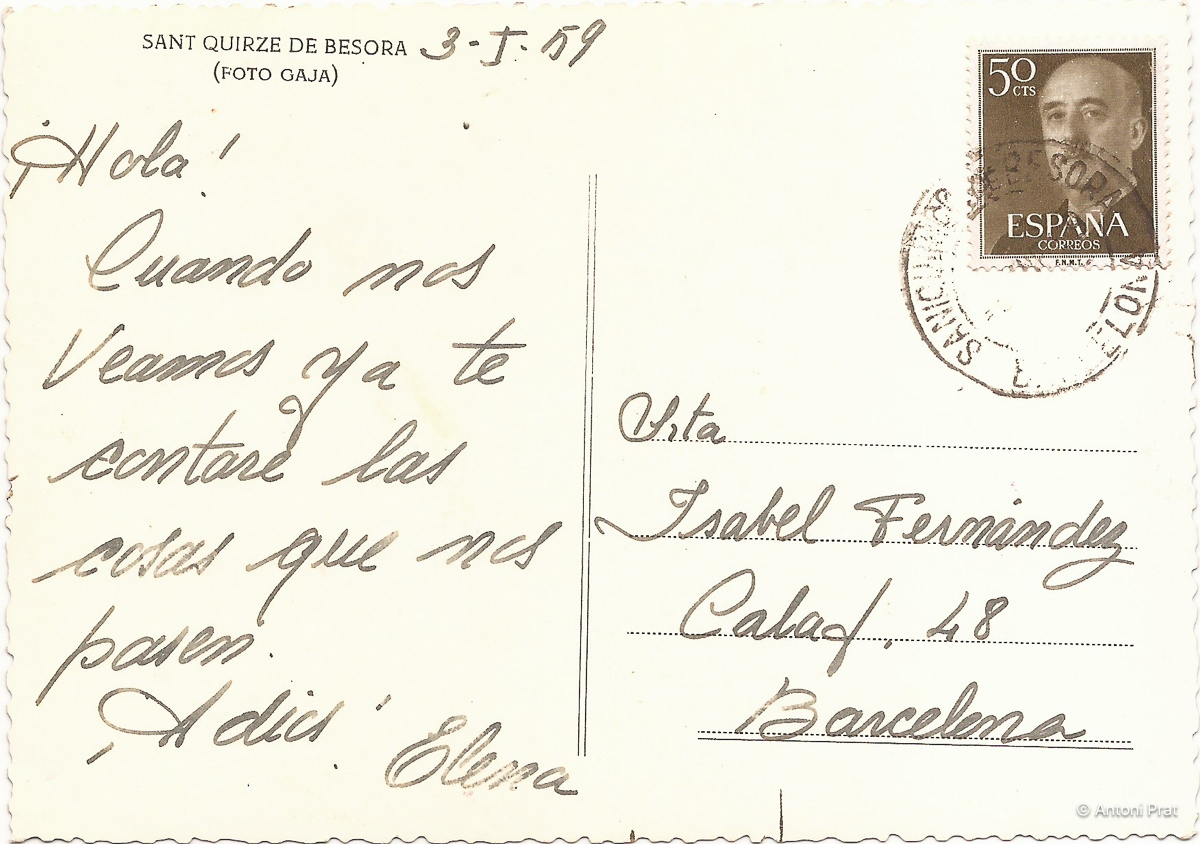 SANT QUIRZE DE BESORA 3-I-59
(FOTO GAJA)
¡Hola!
Cuando nos
veamos ya te
contare las
cosas que nos
pasen.
¡Adios!
Elena
50
CTS
ESPAÑA
CORREOS
F.N.M.T.
Srta
Isabel Fernández
Calaf, 48
Barcelona
© Antoni Prat